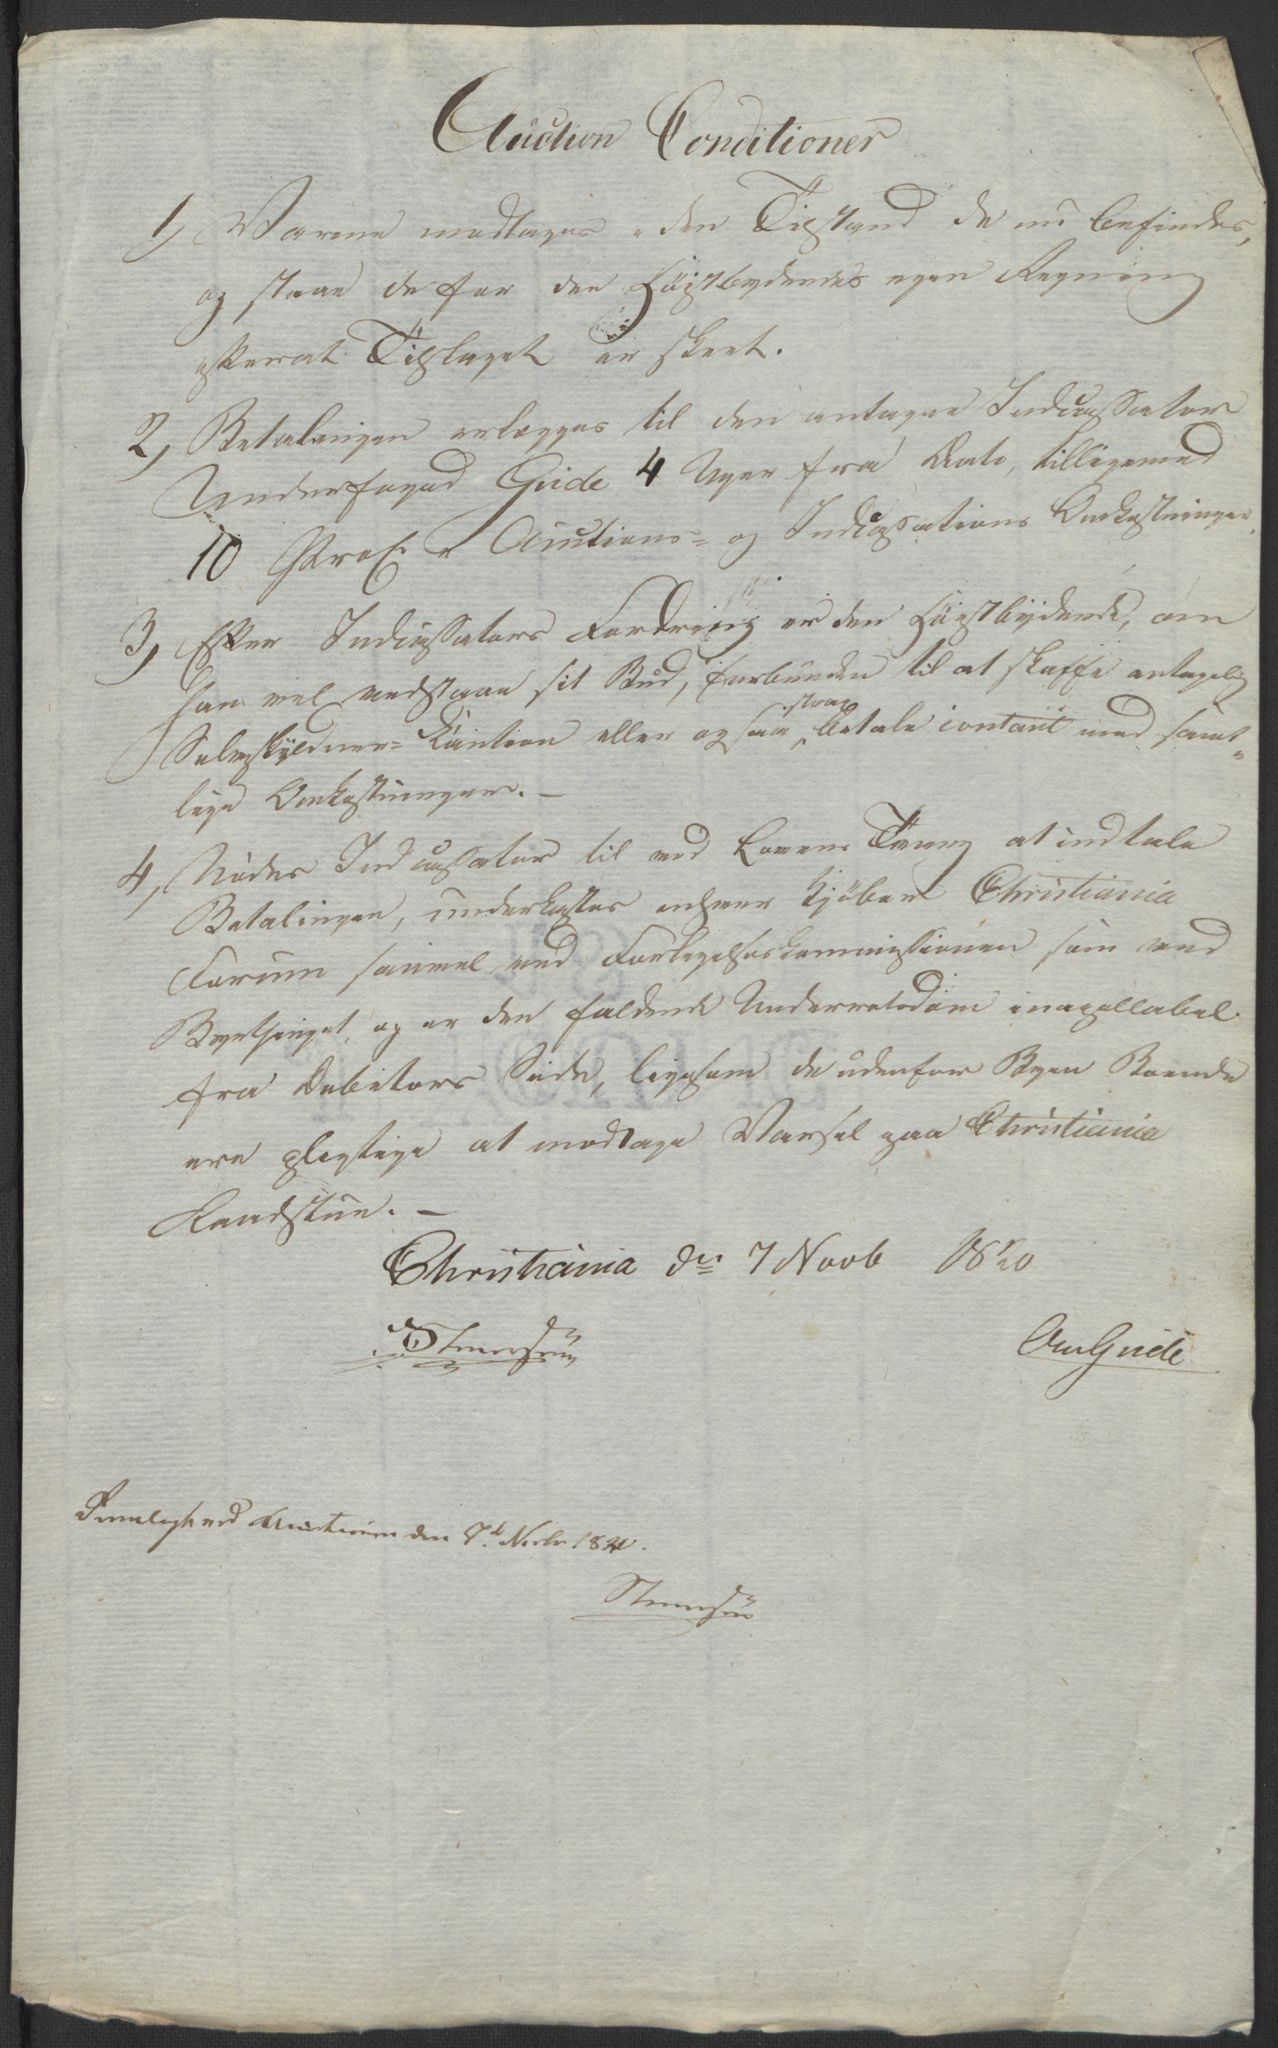 Auction Conditioner
1) Varene modtages i den Tilstand de nu befindes,
og staae de for den Høistbydendes egen Regning
efterat Tilslaget er skeet.
2) Betalingen erlægges til den antagne Incassator
Underfoged Gude 4 Uger fra Dato, tilligemed
10 Proct i Auctions= og Incassations Omkostninger.
3) Efter Incassators Fordring er den Høistbydende, om
han vel vedstaae sit Bud, forbunden til at skaffe antagelig
Selvskyldner= Caution eller ogsaa strax betale contant med samt=
lige Omkostninger. –
4) Nødes Incassator til ved Lovens Tvang at indtale
Betalingen, underkastes enhver Kjøber Christiania
Forum saavel ved Forligelseskommissionen som ved
Byethinget, og er den faldende Underretsdom inapellabel
fra Debitors Side, ligesom de udenfor Byen Boende
ere pligtige at modtage Varsel paa Christiania
Raadstue. –
Christiania den 7 Novb 1820
Steensen
Gude
Fremlagt ved Auctionen den 7d Novbr 1820.
Steensen